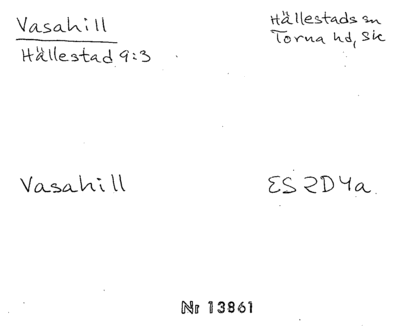 Vasahill
Hällestad 9:3
Hällestads sn
Torna hd, Sk
Vasahill
ES 2D4a
Nr 13861